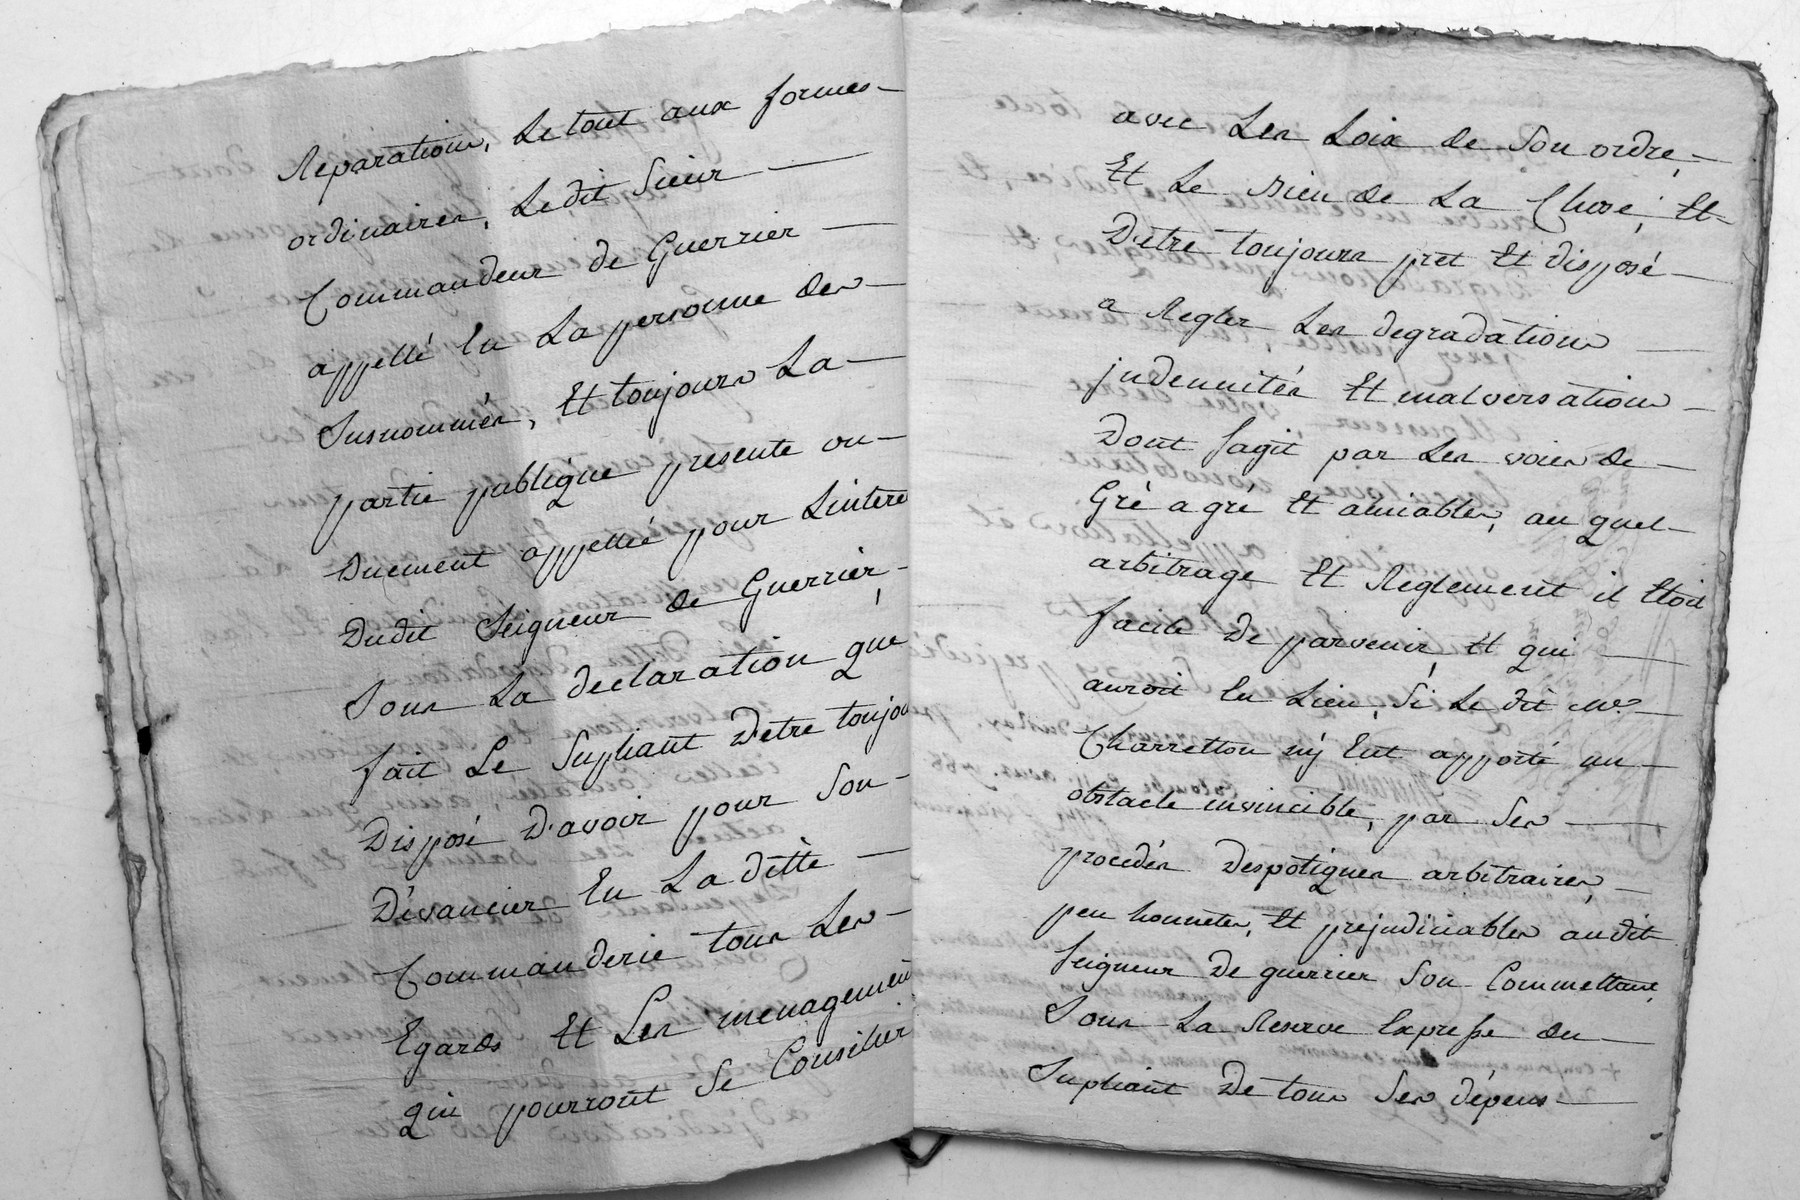 Reparations, Le tout aux formes
ordinaires, Ledit Sieur
Commandeur de Guerrier
appellé En La personne des
Susnommés, Et toujours La
partie publique presente ou
Duement appellée pour Linterê
Dudit Seigneur de Guerrier,
Sous La declaration que
fait Le Supliant D'etre toujou
Disposé D'avoir pour Son
Dévancier En La ditte
Commanderie tous Les
Egards Et Les menagemen
qui pourront Se Consilier
avec Les Loix de Son ordre,
Et Le bien de La Chose, Et
D'etre toujours pret Et disposé
a Regler Les degradations
indemnités Et malversations
Dont Sagit par Les voies de
Gré a gré Et amiables, au quel
arbitrage Et Reglement il Etoit
facile De parvenir, Et qui
auroit Eu Lieu, Si Le dit Me.
Charretton ny Eut apporté un
obstacle invincible, par Ses
procedés Despotiques arbitraires,
peu honnetes, Et prejudiciables audit
Seigneur De guerrier Son Commettant,
Sous La Reserve Expresse du
Supliant De tous Ses dépens